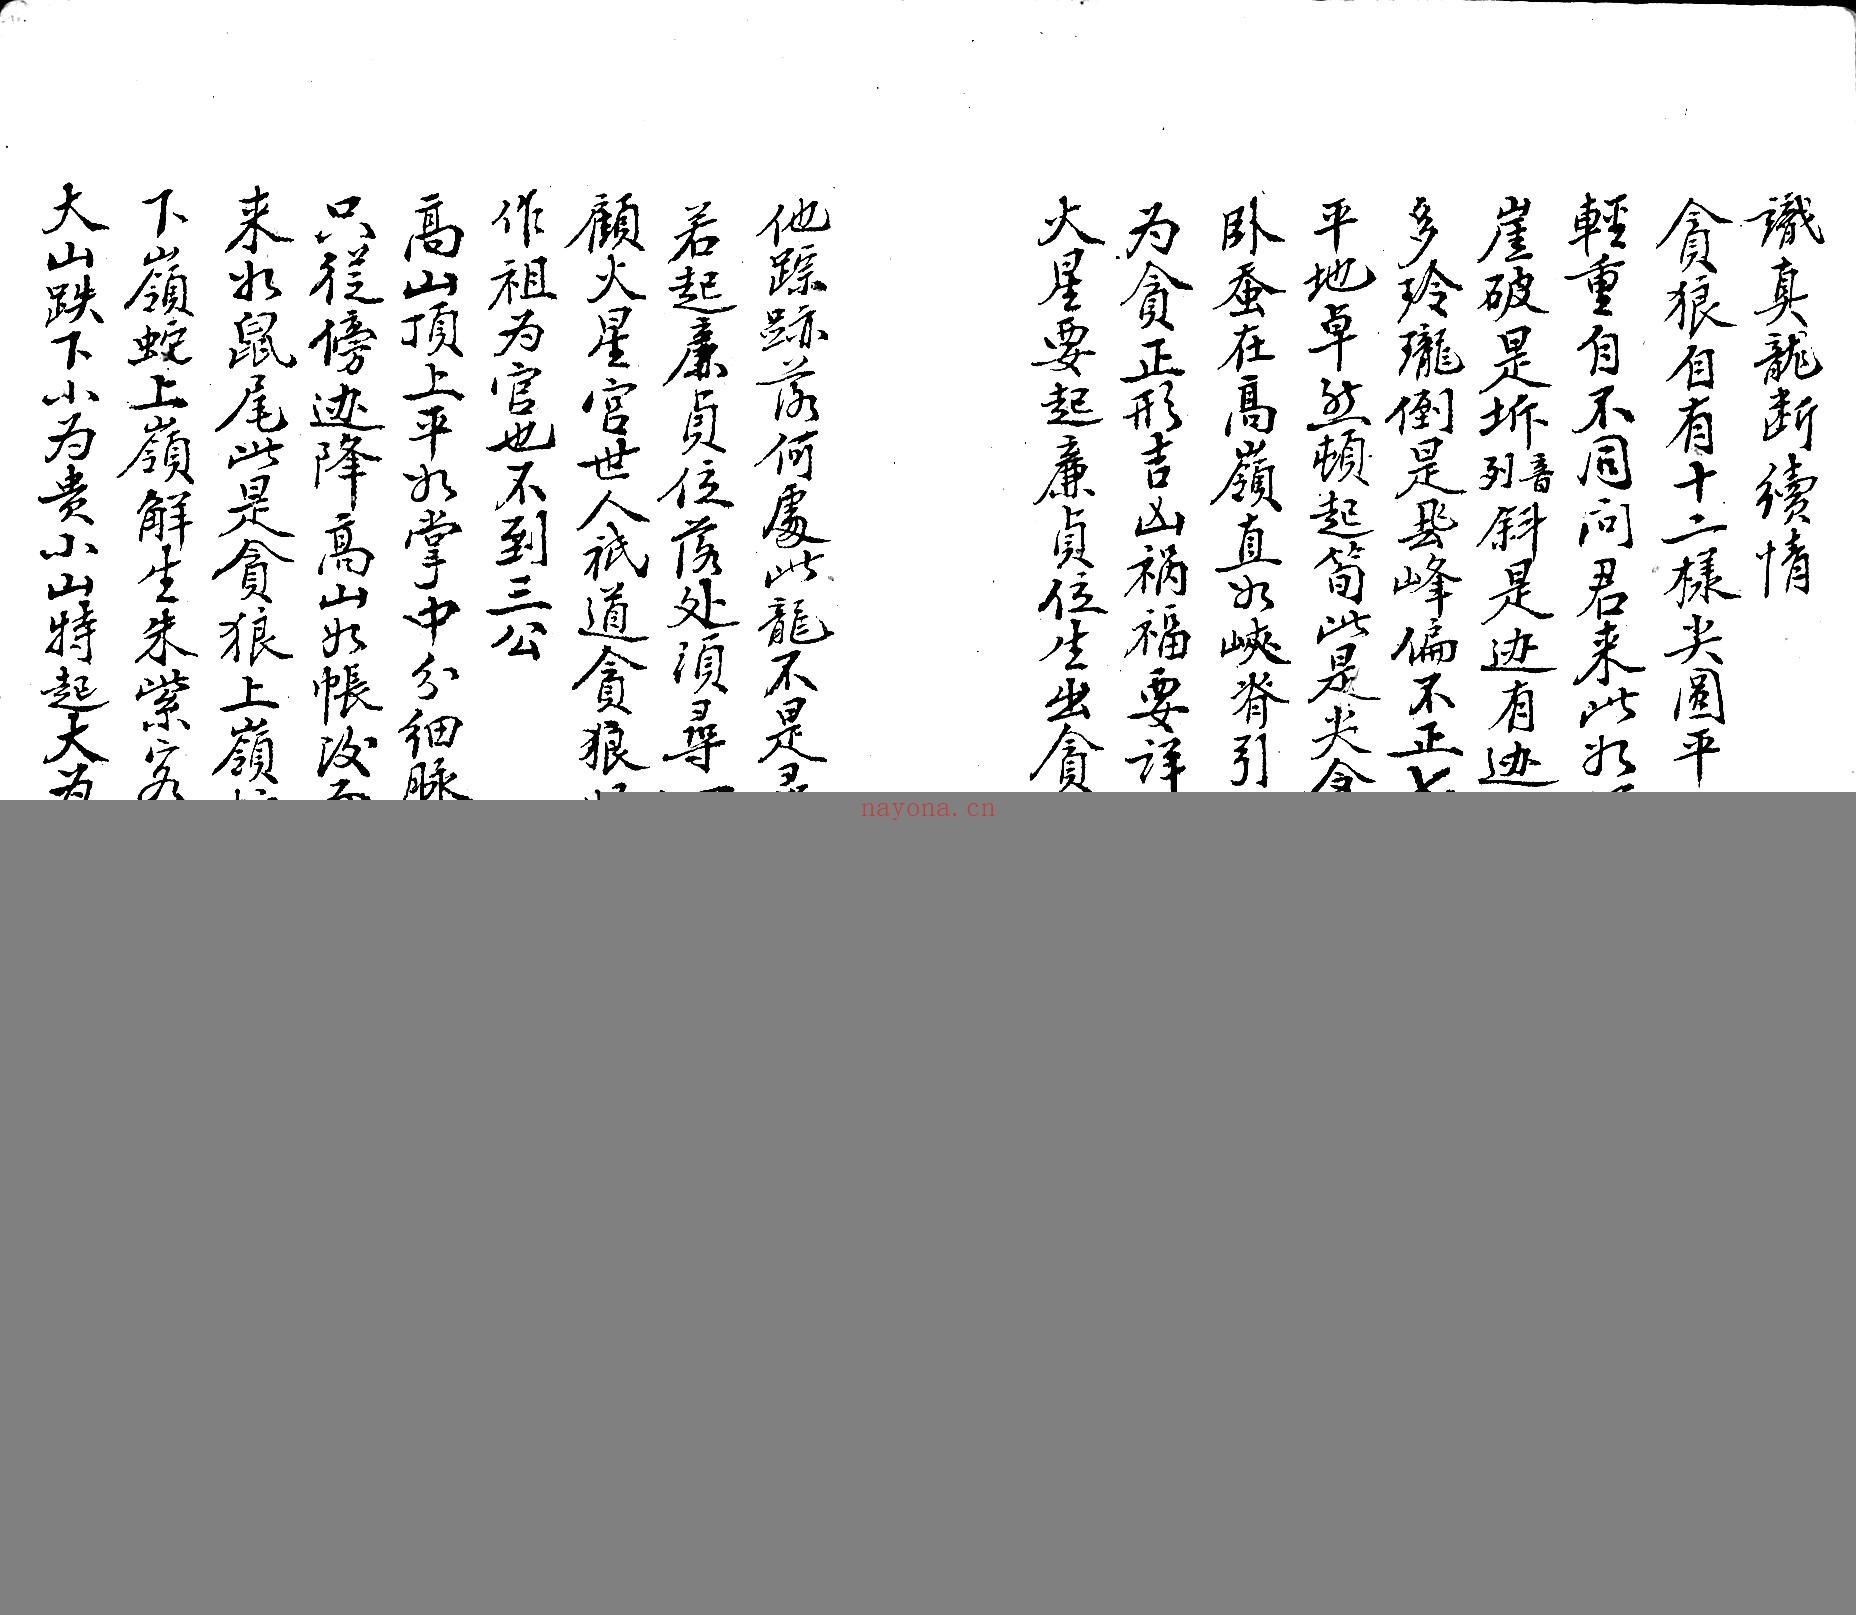 識真龍断續情
貪狼自有十二樣尖圓平
輕重自不同问君来此如
崖破是圻列音斜是迹有迹
多玲瓏倒是峰偏不正七
平地卓然頓起筍此是尖貪
卧蚕在高嶺直如峽脊引
为貪正形吉凶祸福要详
火星要起廉貞位生出貪
他踪跡落何處此龍不是尋
若起廉貞位落处須尋
顧火星宫世人祇道貪狼
作祖为官也不到三公
高山顶上平如掌中分细脉
只從傍迹降高山如帳改
来如鼠尾此是貪狼上嶺
下嶺蛇上嶺解生朱紫客
大山跌下小为贵小山特起大为
nayona.cn